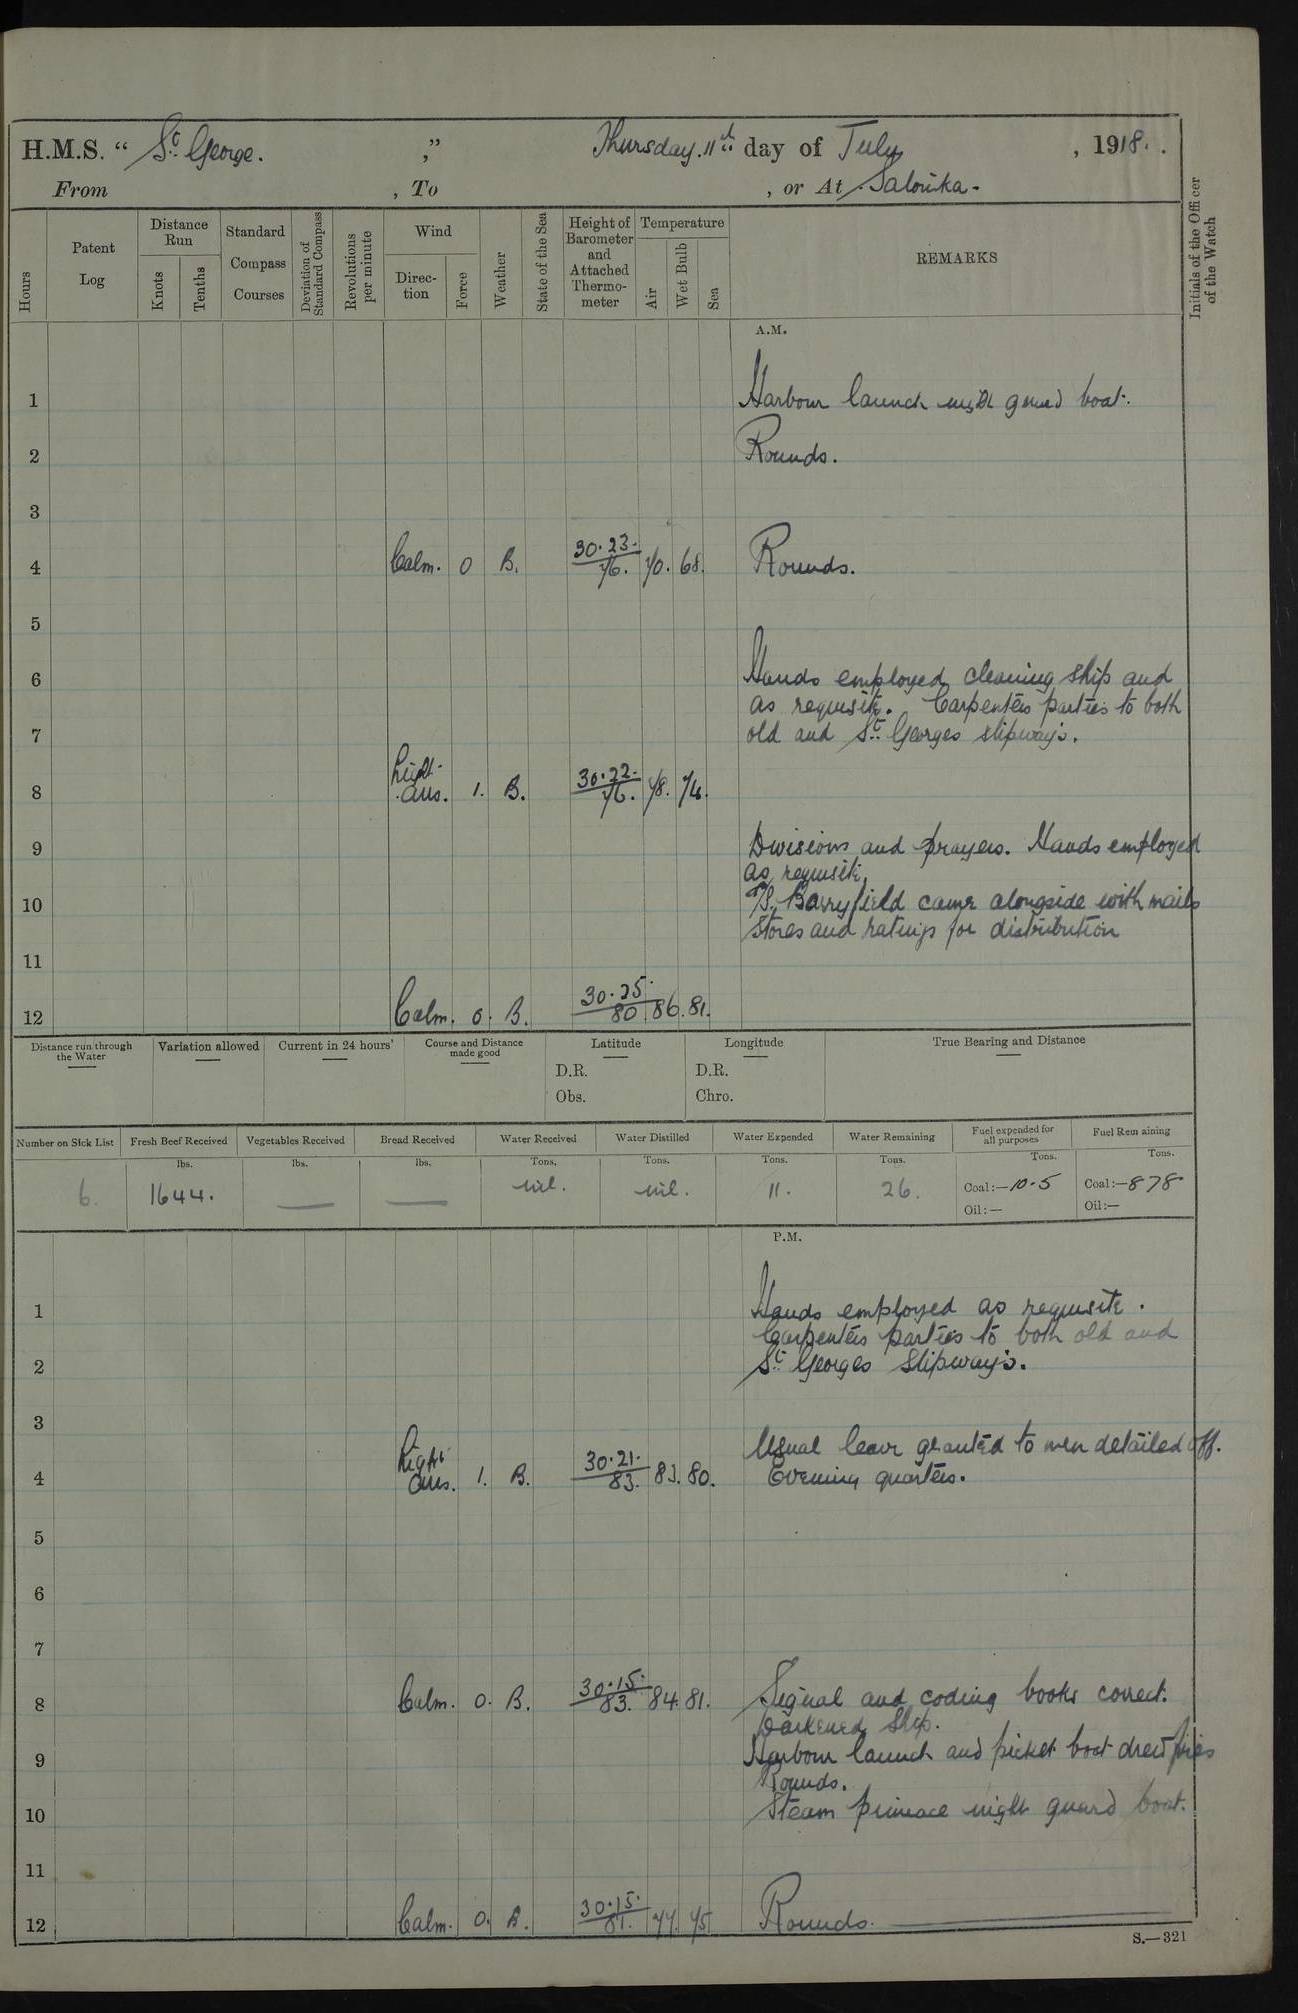 H.M.S. “ St. George. ,” Thursday. 11th day of July , 1918.
From , To , or At Salonika -
Hours
Patent Log
Distance Run
Knots
Tenths
Standard Compass Courses
Deviation of Standard Compass
Revolutions per minute
Wind
Direction
Force
Weather
State of the Sea
Height of Barometer and Attached Thermometer
Temperature
Air
Wet Bulb
Sea
REMARKS
Initials of the Officer of the Watch
A.M.
1 Harbour launch night guard boat.
2 Rounds.
3
4 Calm. 0 B. 30.23. 76. 70. 68. Rounds.
5
6 Hands employed cleaning ship and
as requisite. Carpenters parties to both
7 old and St. Georges slipways.
Light
8 airs. 1. B. 30.22. 76. 78. 74.
9 Divisions and prayers. Hands employed
as requisite.
10 Barryfield came alongside with mails
stores and ratings for distribution
11
12 Calm. 0. B. 30.25. 80 86. 81.
Distance run through the Water
Variation allowed
Current in 24 hours
Course and Distance made good
Latitude
D.R.
Obs.
Longitude
D.R.
Chro.
True Bearing and Distance
Number on Sick List
Fresh Beef Received
Vegetables Received
Bread Received
Water Received
Water Distilled
Water Expended
Water Remaining
Fuel expended for all purposes
Fuel Remaining
lbs. lbs. lbs. Tons. Tons. Tons. Tons. Tons. Tons.
6. 1644. — — nil. nil. 11. 26. Coal:—10.5 Coal:—878
Oil:— Oil:—
P.M.
1 Hands employed as requisite.
Carpenters parties to both old and
2 St. Georges slipways.
3
Light Usual leave granted to men detailed off.
4 airs. 1. B. 30.21. 83. 83. 80. Evening quarters.
5
6
7
8 Calm. 0. B. 30.15. 83. 84. 81. Signal and coding books correct.
Darkened Ship.
9 Harbour launch and picket boat drew fires
Rounds.
10 Steam pinnace night guard boat.
11
12 Calm. 0. B. 30.15. 81. 77. 75 Rounds.
S.—321